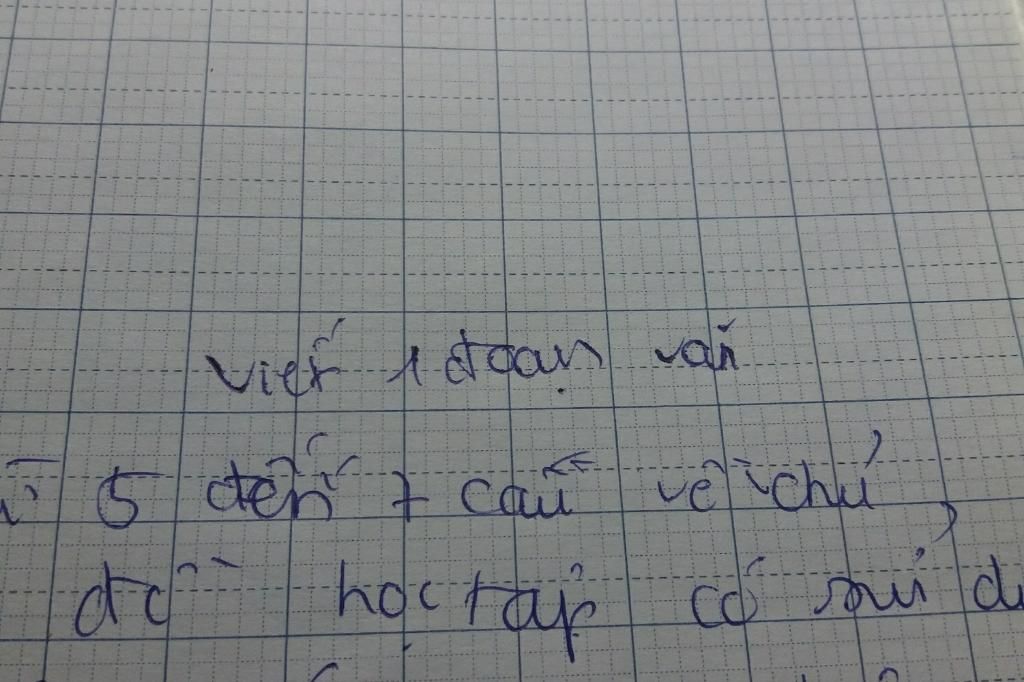 viết 1 đoạn văn
5 đến 7 câu về chủ
đề học tập có sử